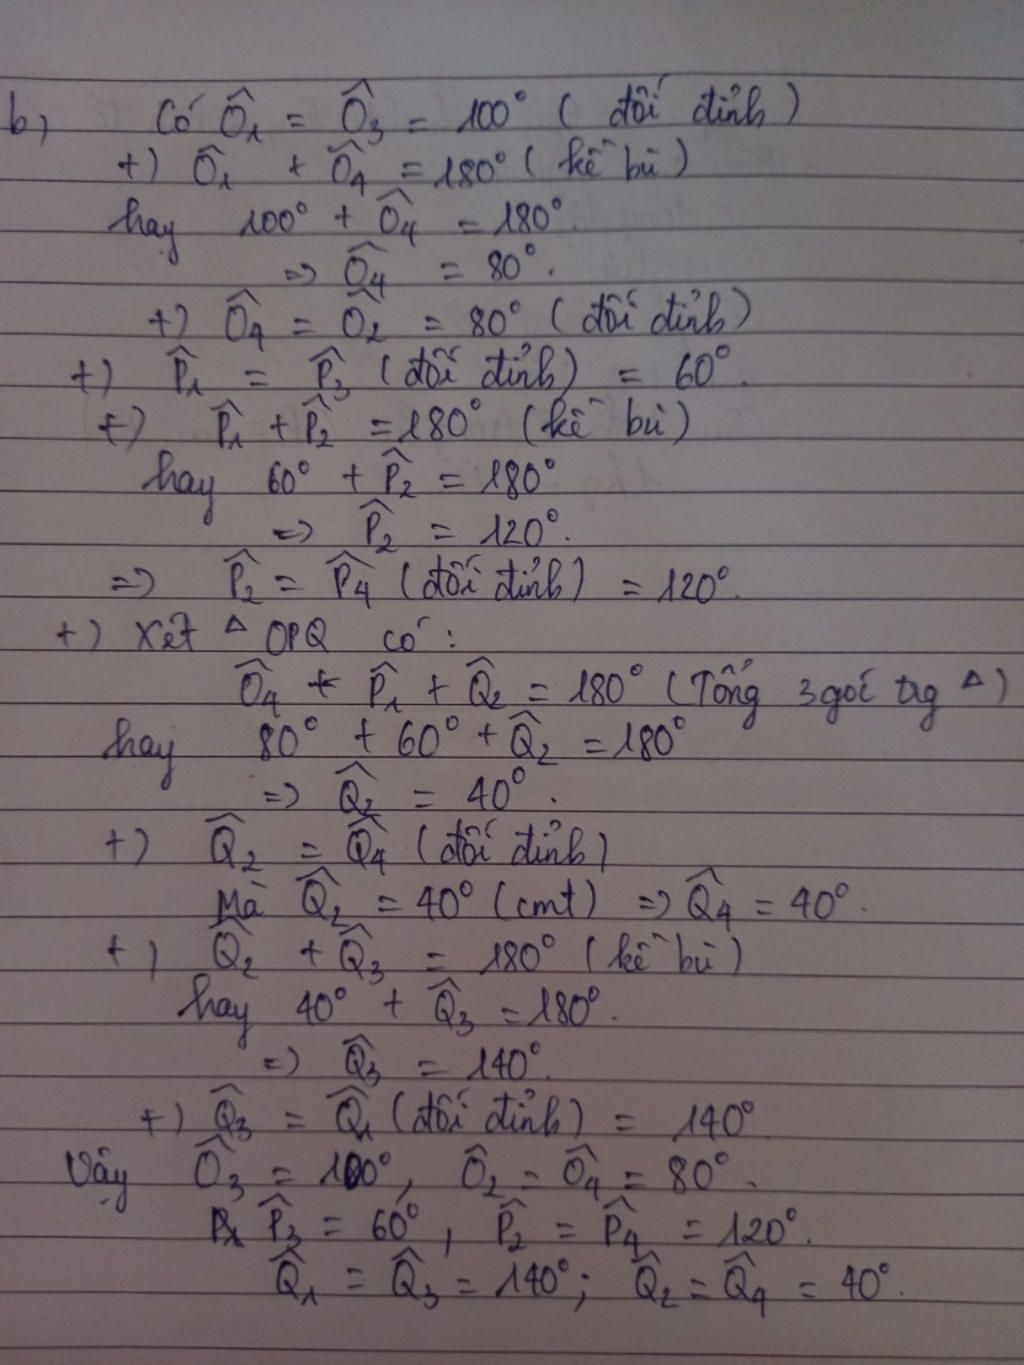 b, Có Ô₁ = Ô₃ = 100° ( đối đỉnh )
+) Ô₁ + Ô₄ = 180° ( kề bù )
hay 100° + Ô₄ = 180°
=> Ô₄ = 80°.
+) Ô₄ = Ô₂ = 80° ( đối đỉnh )
+) P̂₁ = P̂₃ ( đối đỉnh ) = 60°.
+) P̂₁ + P̂₂ = 180° ( kề bù )
hay 60° + P̂₂ = 180°
=> P̂₂ = 120°.
=> P̂₂ = P̂₄ ( đối đỉnh ) = 120°.
+) Xét △ OPQ có :
Ô₄ + P̂₁ + Q̂₂ = 180° ( Tổng 3 goí trg △ )
hay 80° + 60° + Q̂₂ = 180°
=> Q̂₂ = 40°.
+) Q̂₂ = Q̂₄ ( đối đỉnh )
Mà Q̂₂ = 40° (cmt) => Q̂₄ = 40°.
+) Q̂₂ + Q̂₃ = 180° ( kề bù )
hay 40° + Q̂₃ = 180°.
=> Q̂₃ = 140°.
+) Q̂₃ = Q̂₁ ( đối đỉnh ) = 140°
Vậy Ô₃ = 100°, Ô₂ = Ô₄ = 80°.
P̂₃ = 60°, P̂₂ = P̂₄ = 120°.
Q̂₁ = Q̂₃ = 140°; Q̂₂ = Q̂₄ = 40°.